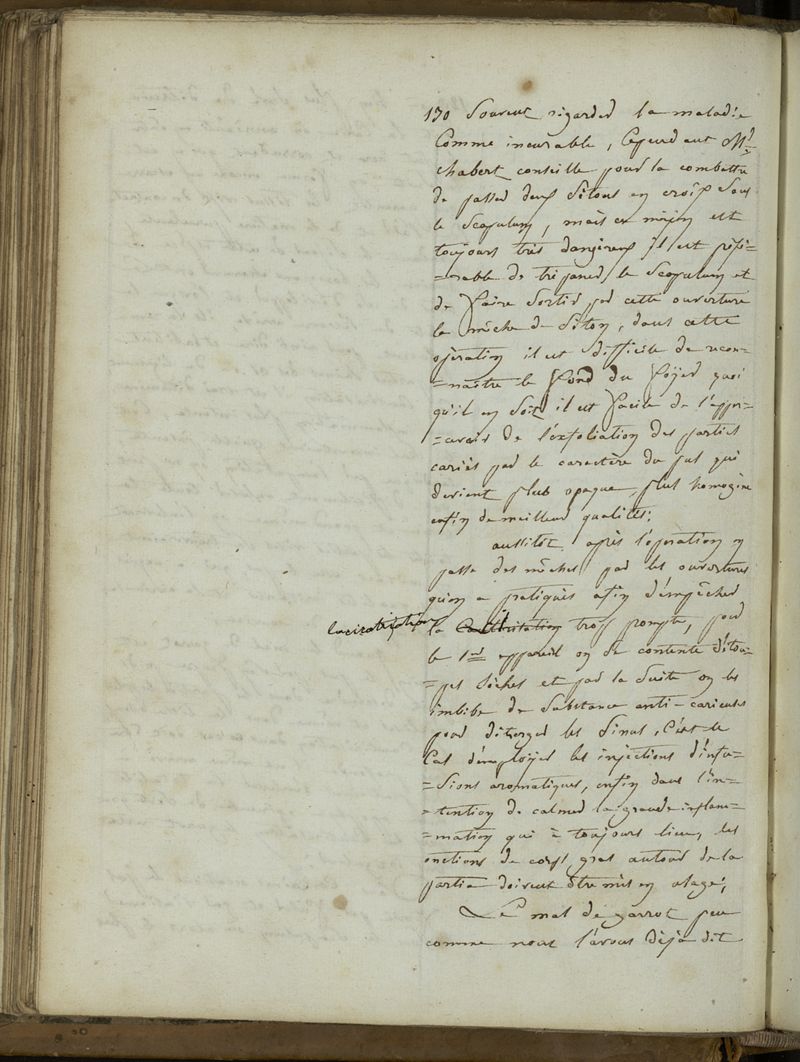 130 Souvent regarder la maladie
Comme incurable, Cependant Mr
chabert conseille pour la combattre
de passer deux Sétons en croix Sous
le Scapulum, mais ce moyen est
toujours très dangereux il est préfé=
=rable de trépaner le Scapulum et
de faire Sortir par cette ouverture
la mèche de Séton, dans cette
opération il est difficile de recon=
=naître le fond du foyer quoi
qu'il en Soit il est facile de s'apper=
=cevoir de l'exfoliation des parties
cariés par le caractère du pus qui
devient plus opaque, plus homogène
enfin de meilleur qualités;
aussitôt après l'opération on
passe des mêches par les ouvertures
qu'on a pratiqués afin d'empêcher
la cicatrisation trop prompte, pour
le 1er appareil on se contente d'étou=
=pes sêches et par la Suite on les
imbibe de Substance anti-carieuses
pour déterger les Sinus, C'est le
Cas d'employer les injections d'infu=
=sions aromatiques, enfin dans l'in=
=tention de calmer la grande inflam=
=mation qui à toujours lieu, les
onctions de corps gras autour de la
partie doivent être mis en usage;
Le mal de garrot peu
comme nous l'avons déjà dit